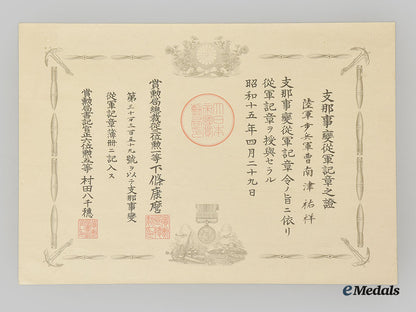 支那事變從軍記章之證
陸軍步兵軍曹南津祐祥
支那事變從軍記章令ノ旨ニ依リ
從軍記章ヲ授與セラル
昭和十五年四月二十九日
賞勲局總裁從位勲一等下條康麿
號ヲ以テ支那事變
從軍記章簿册ニ記入ス
賞勲局書記官正六位勲等村田八千穗
eMedals